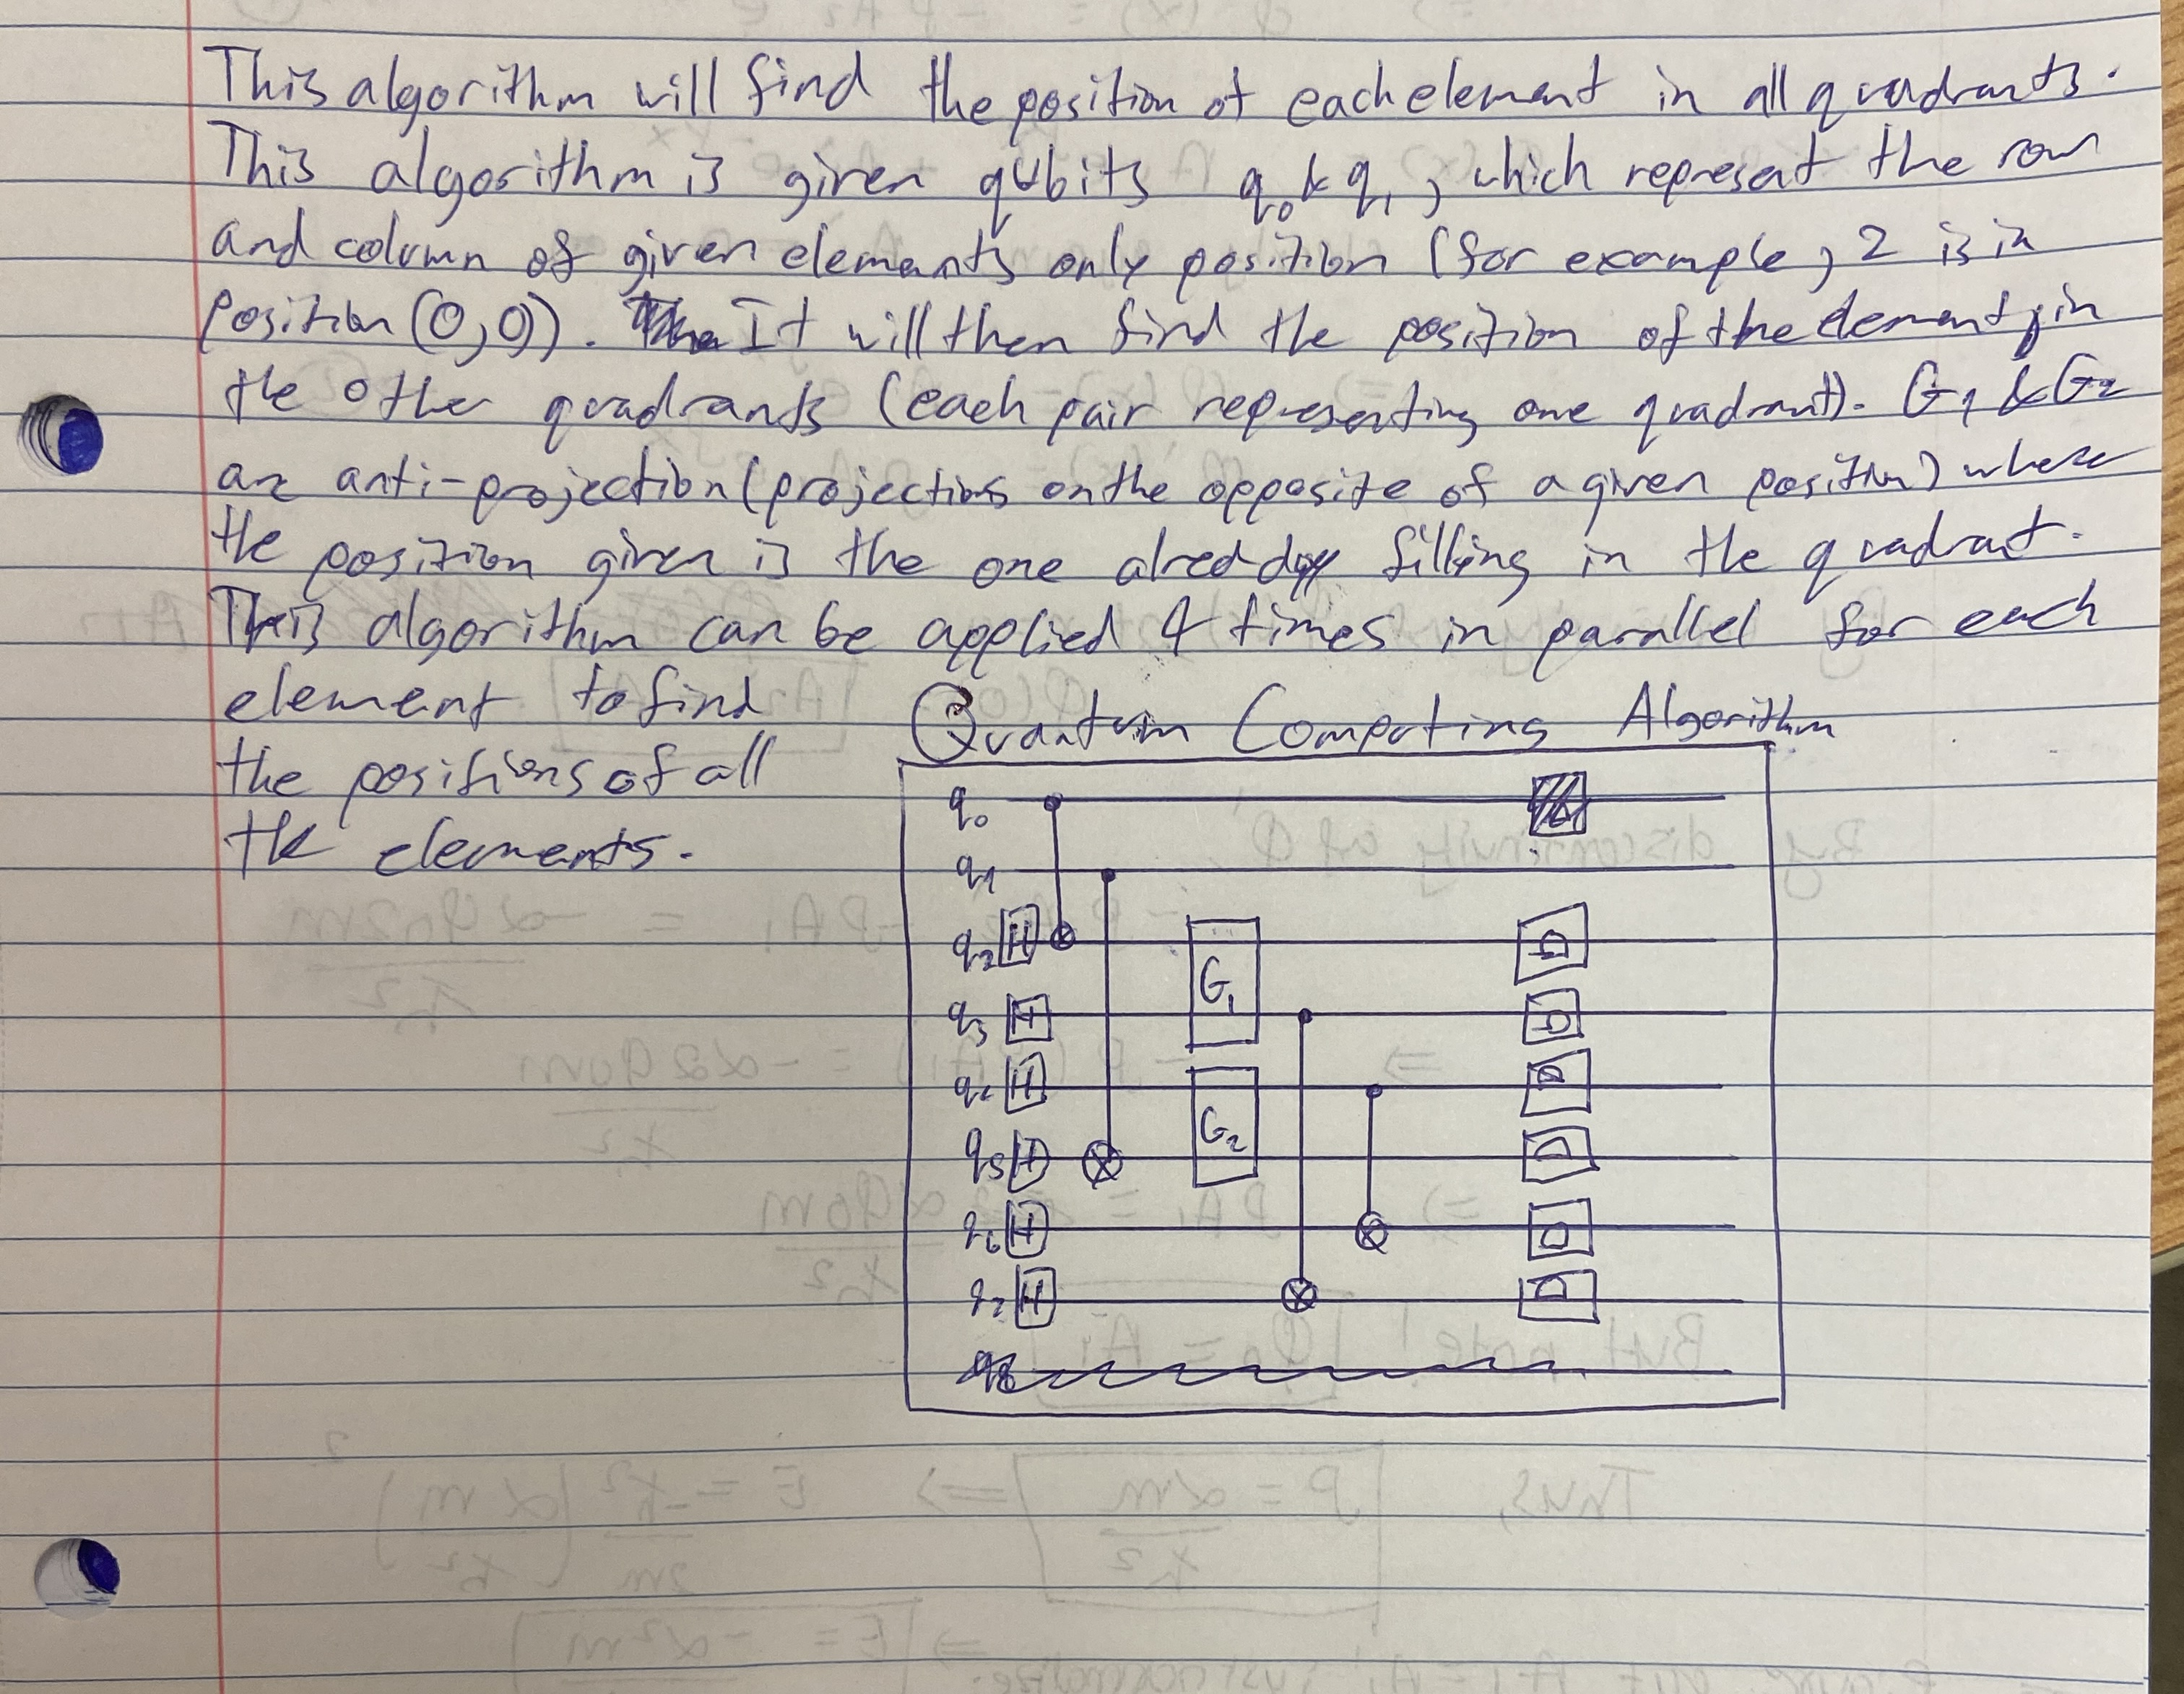 This algorithm will find the position of each element in all quadrants.
This algorithm is given qubits q₀ & q₁, which represent the row
and column of given elements only position (for example, 2 is in
position (0,0)). It will then find the position of the element in
the other quadrants (each pair representing one quadrant). G₁ & G₂
are anti-projection (projections on the opposite of a given position) where
the position given is the one already filling in the quadrant.
This algorithm can be applied 4 times in parallel for each
element to find
the positions of all
the elements.
Quantum Computing Algorithm
q₀
q₁
q₂ H
G₁
q₃ H
q₄ H
G₂
q₅ H
q₆ H
q₇ H
q₈